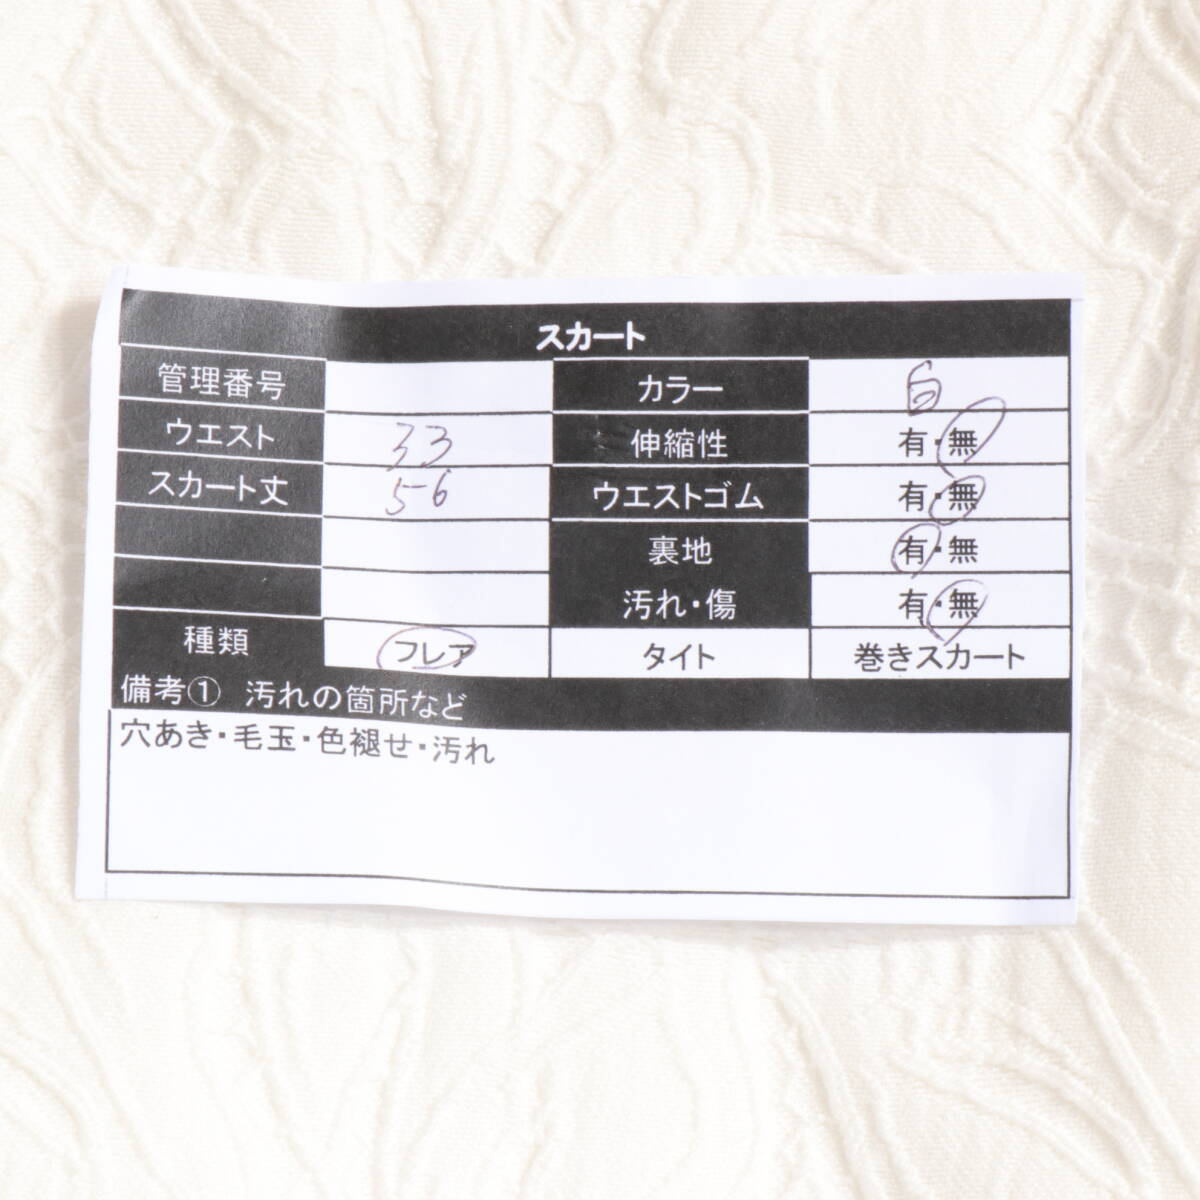 スカート
管理番号 カラー 白
ウエスト 33 伸縮性 有・無
スカート丈 56 ウエストゴム 有・無
裏地 有・無
汚れ・傷 有・無
種類 フレア タイト 巻きスカート
備考① 汚れの箇所など
穴あき・毛玉・色褪せ・汚れ